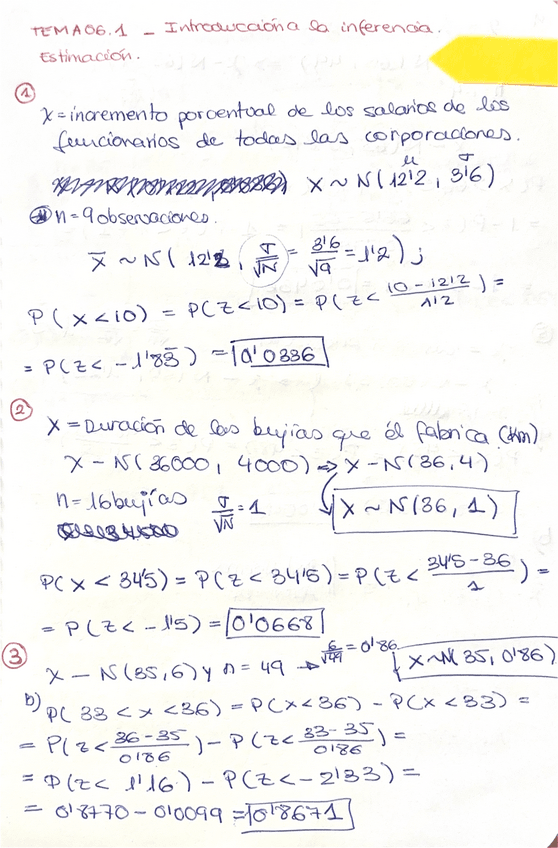 TEMA 06.1 - Introducción a la inferencia.
Estimación.
①
X = incremento porcentual de los salarios de los
funcionarios de todas las corporaciones.
μ σ
X ~ N(12'2, 3'6)
n = 9 observaciones.
X̄ ~ N(12'2, σ/√N = 3'6/√9 = 1'2);
P(X<10) = P(Z<10) = P(Z< (10-12'2)/1'2) =
= P(Z< -1'83̄) = 0'0336
②
X = Duración de las bujías que él fabrica (Km)
X - N(36000, 4000) ⇒ X - N(36,4)
n = 16 bujías σ/√N = 1 X ~ N(36, 1)
P(X < 34'5) = P(Z < 34'5) = P(Z < (34'5-36)/1) =
= P(Z < -1'5) = 0'0668
③
X - N(35,6) y n = 49 → 6/√49 = 0'86 X~N(35, 0'86)
b) P(33 < X < 36) = P(X<36) - P(X<33) =
= P(Z< (36-35)/0'86) - P(Z< (33-35)/0'86) =
= P(Z< 1'16) - P(Z< -2'33) =
= 0'8770 - 0'0099 = 0'8671